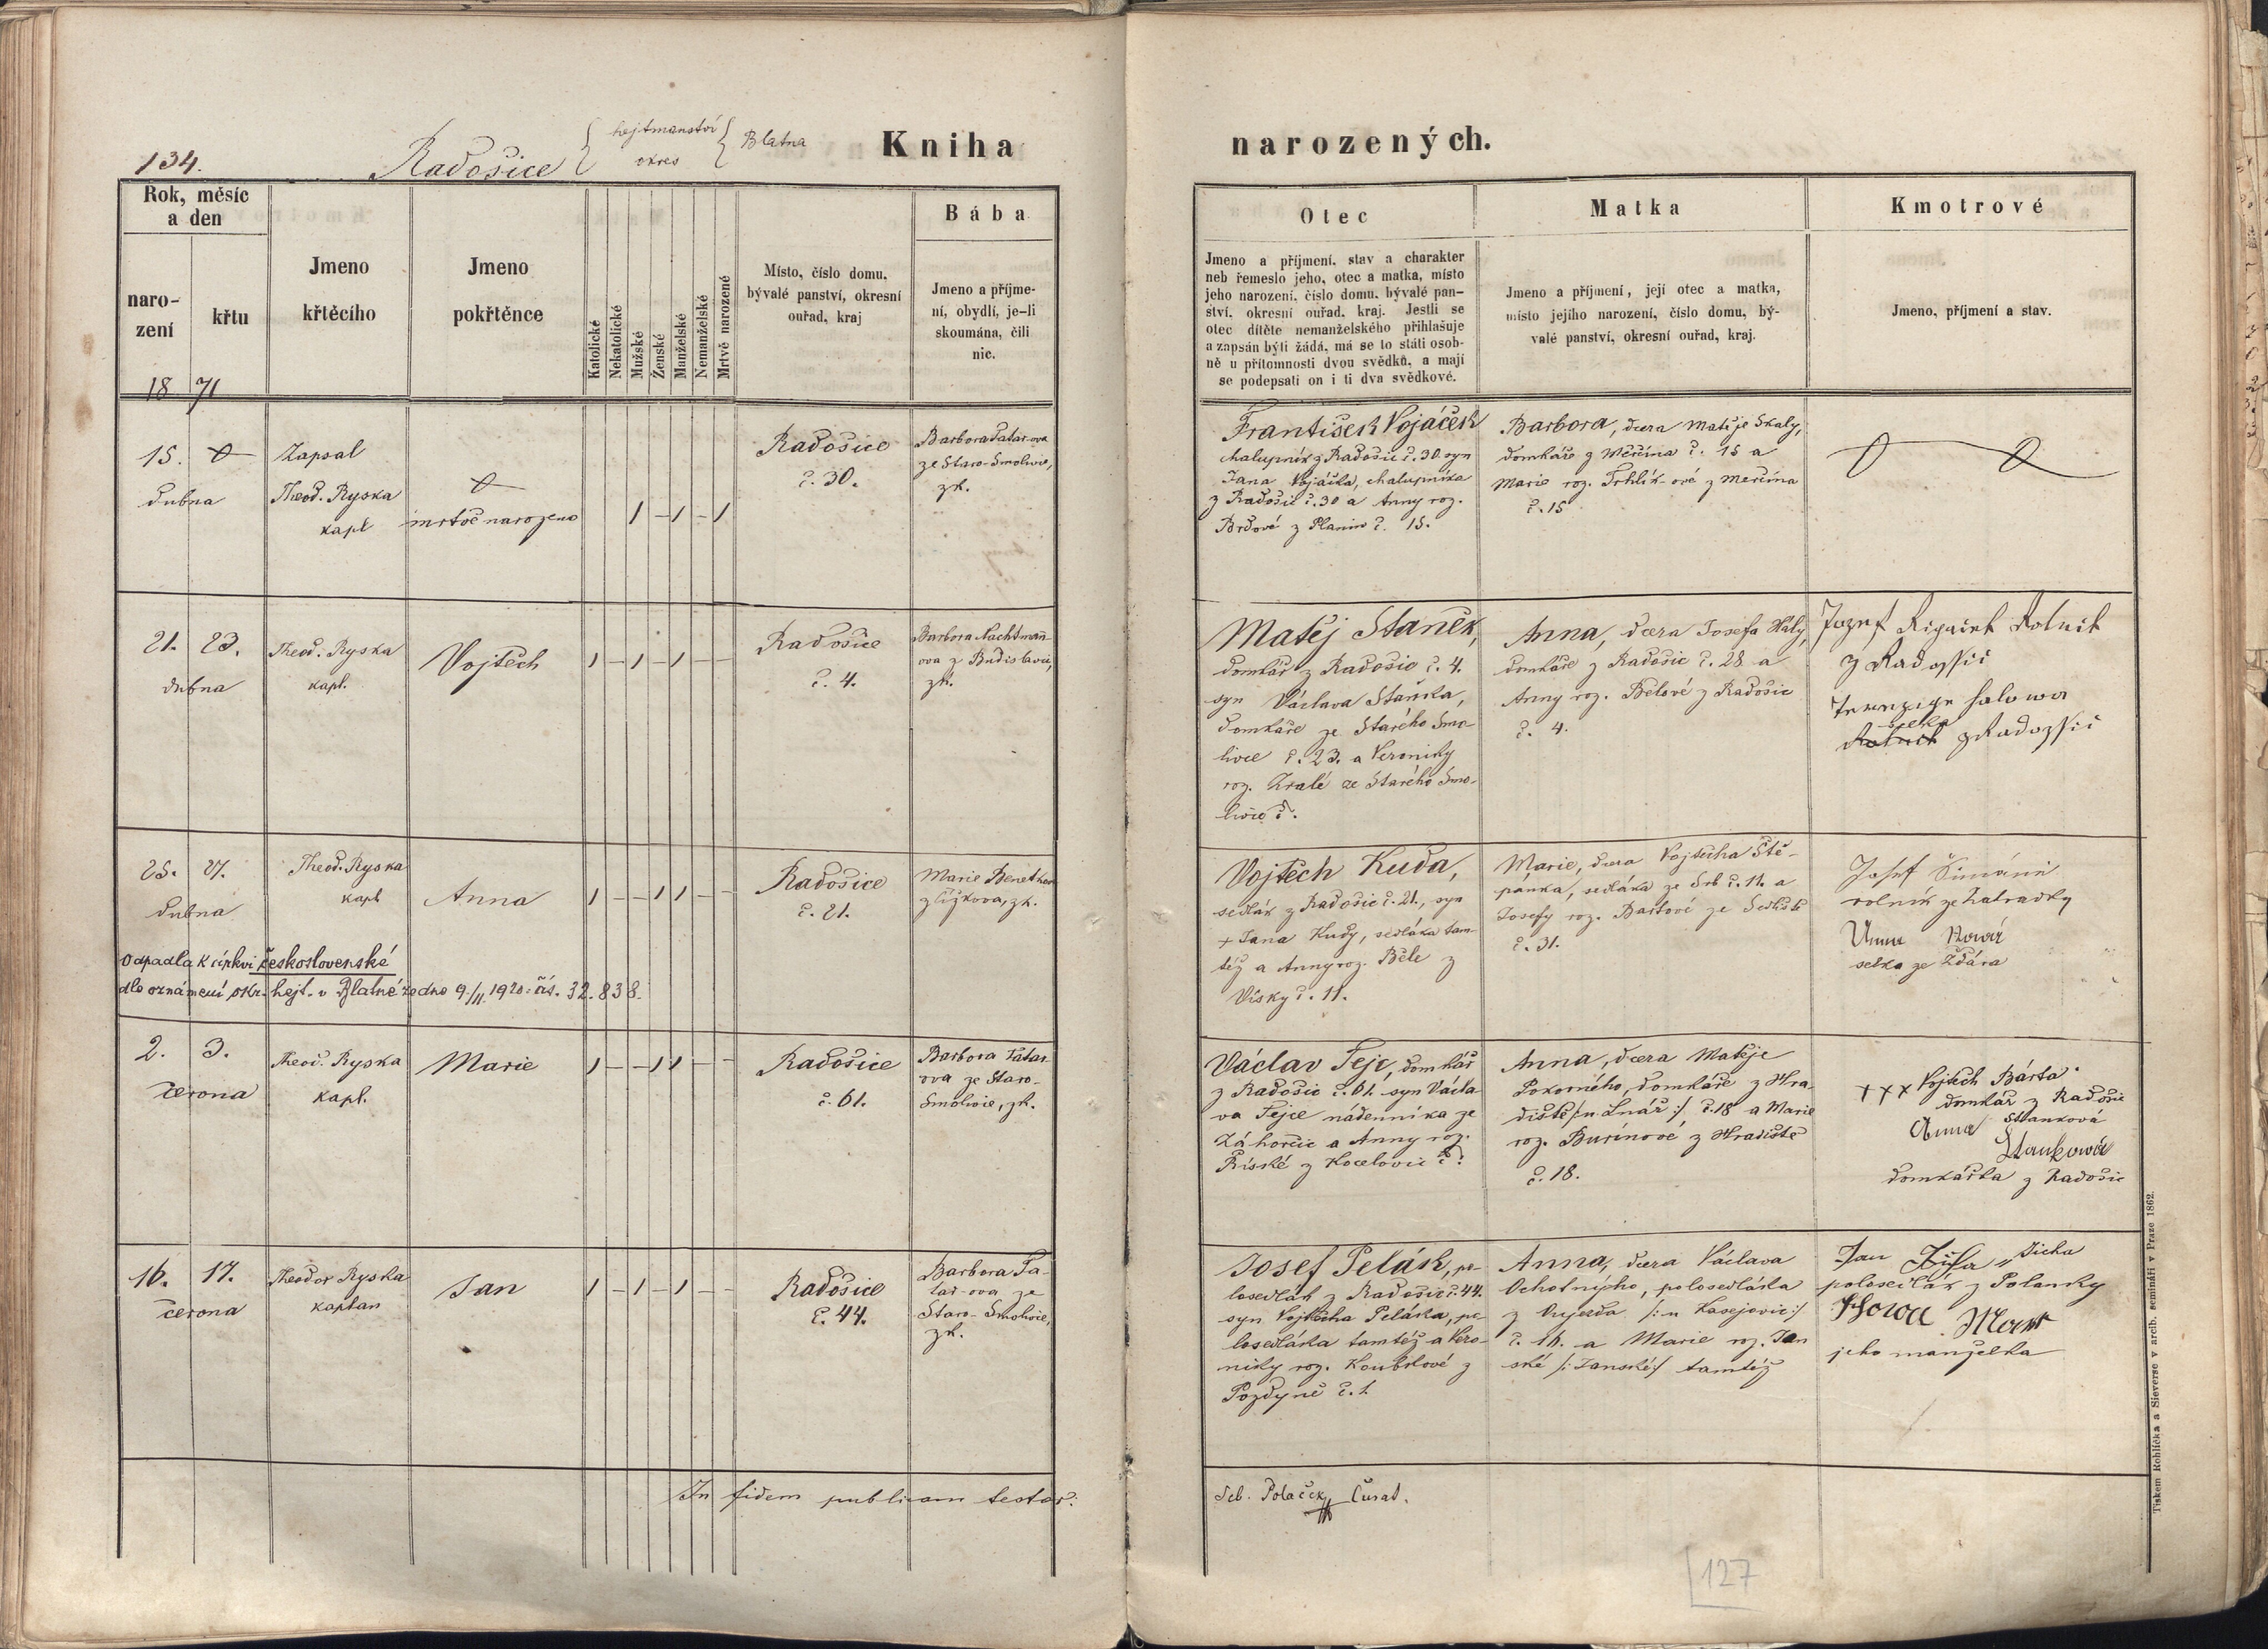 134.
Radošice
hejtmanství
okres
Blatna
Kniha
Rok, měsíc
a den
naro-
zení
křtu
18 71
Jmeno
křtěcího
Jmeno
pokřtěnce
Katolické
Nekatolické
Mužské
Ženské
Manželské
Nemanželské
Mrtvě narozené
Místo, číslo domu,
bývalé panství, okresní
ouřad, kraj
Bába
Jmeno a příjme-
ní, obydlí, je-li
skoumána, čili
nic.
15.
dubna
Zapsal
Theod. Ryska
kapl
mrtvě narozeno
Radošice
č. 30.
Barbora Tatar-ova
ze Staro-Smolivce,
zk.
21. 23.
dubna
Theod. Ryska
kapl.
Vojtěch
Radošice
č. 4.
Barbora Nachtman-
ova z Budislavic,
zk.
25. 27.
dubna
Theod. Ryska
kapl
Anna
Radošice
č. 21.
Marie
zk.
Odpadla k církvi československé
dle oznámení okr. hejt. v Blatné ze dne 9./11. 1920. čís. 32.838.
2. 3.
června
Theod. Ryska
kapl.
Marie
Radošice
č. 61.
Barbora Tatar-
ova ze Staro-
Smolivce, zk.
16. 17.
června
Theodor Ryska
kaplan
Jan
Radošice
č. 44.
Barbora Ta-
tar-ova ze
Staro-Smolivce,
zk.
In fidem publicam testor:
narozených.
Otec
Jmeno a příjmení, stav a charakter
neb řemeslo jeho, otec a matka, místo
jeho narození, číslo domu, bývalé pan-
ství, okresní ouřad, kraj. Jestli se
otec dítěte nemanželského přihlašuje
a zapsán býti žádá, má se to státi osob-
ně u přítomnosti dvou svědků, a mají
se podepsati on i ti dva svědkové.
Matka
Jmeno a příjmení, její otec a matka,
místo jejího narození, číslo domu, bý-
valé panství, okresní ouřad, kraj.
Kmotrové
Jmeno, příjmení a stav.
František Vojáček
chalupník z Radošic č. 30. syn
Jana Vojáčka, chalupníka
z Radošic č. 30 a Anny roz.
Brdové z Planin č. 15.
Barbora, dcera Matěje Skaly,
domkáře z Měčína č. 15 a
Marie roz. Trhlík-ové z Měčína
č. 15
Matěj Staněk,
domkář z Radošic č. 4.
syn Václava Staňka,
domkáře ze Starého Smo-
livce č. 23. a Veroniky
roz. Zralé ze Starého Smo-
livce č.
Anna, dcera Josefa Haly,
domkáře z Radošic č. 28 a
Anny roz. Bělové z Radošic
č. 4.
Jozef Rolnik
z Radossic
z Radossic
Vojtěch Kuda,
sedlák z Radošic č. 21., syn
+ Jana Kudy, sedláka tam-
též a Anny roz. Běle z
Vísky č. 11.
Marie, dcera Vojtěcha Ště-
pánka, sedláka ze Srb č. 11. a
Josefy roz. Bartové ze Sedliště
č. 31.
Josef Šimáně
rolník ze Zahradky
Anna
selka ze Ždára
Václav Fejc, domkář
z Radošic č. 61. syn Václa-
va Fejce nádenníka ze
Záhorčic a Anny roz.
z Kocelovic č.
Anna, dcera Matěje
Pokorného, domkáře z Hra-
diště /:u Lnář:/ č. 18 a Marie
roz. Burínové z Hradiště
č. 18.
+++ Vojtěch Bárta
domkář z Radošic
Anna Stanková
Stankowa
domkářka z Radošic
Josef Pelák, po-
losedlák z Radošic č. 44.
syn Vojtěcha Peláka, po-
losedláka tamtéž a Vero-
niky roz. Koubkové z
Pozdyně č. 1.
Anna, dcera Václava
Ochotného, polosedláka
z Oujezda /:u Kasejovic:/
č. 16. a Marie roz. Jan
ské /:Janské:/ tamtéž
Jan Zicha
polosedlák z Polanky
jeho manželka
Seb. Polaček Curat.
127
Tiskem Rohlíčka a Sieverse v arcib. semináři v Praze 1862.